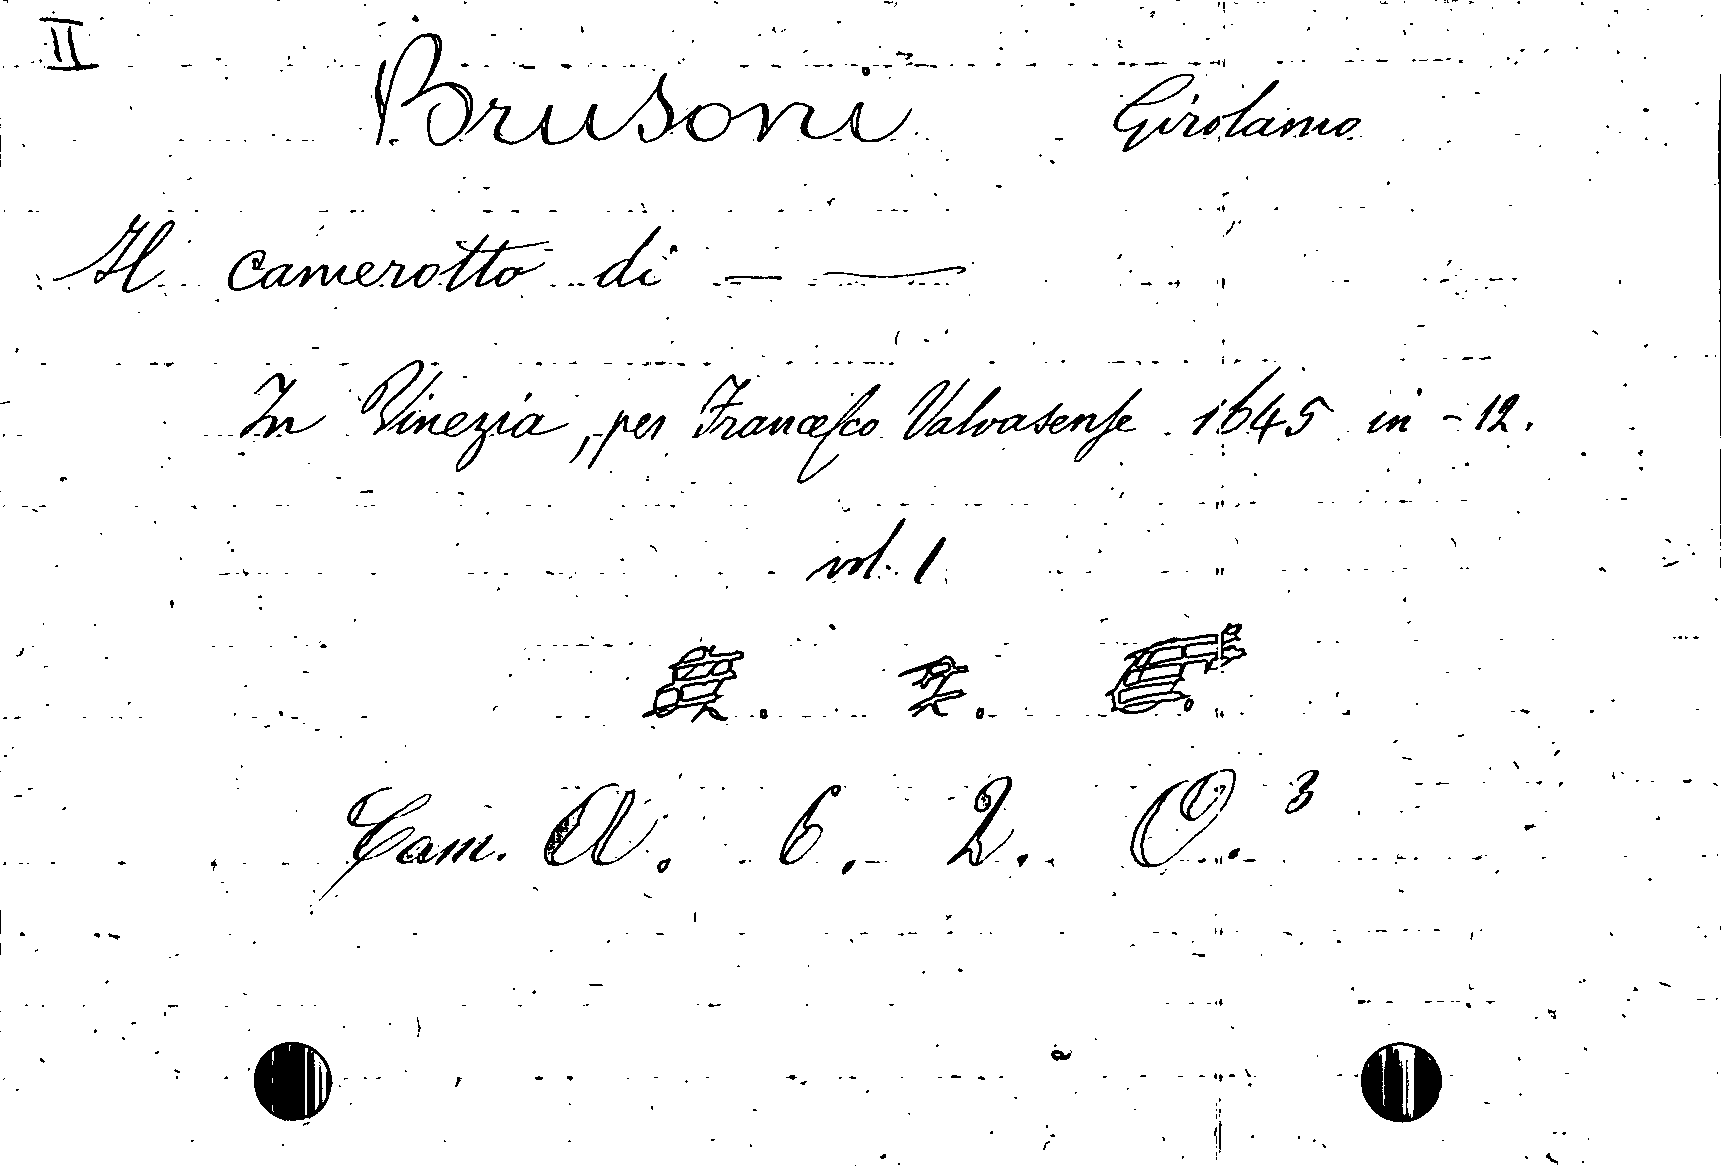 II
Brusoni Girolamo
Il camerotto di — —
In Vinezia, per Francesco Valvasense 1645 in-12.
vol. 1
Cam. A. 6. 2. O.³